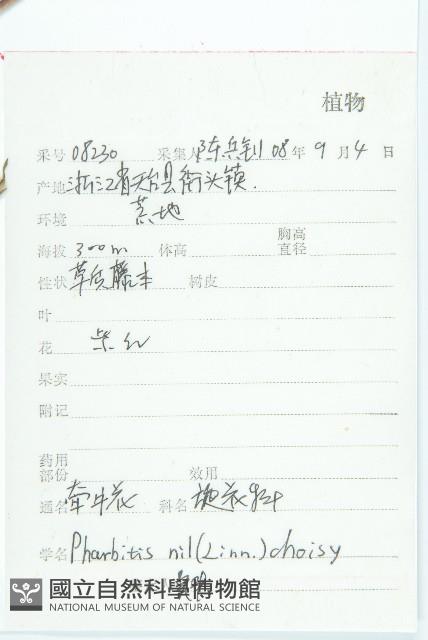 植物
采号 08230 采集人 陈兵钊 08年 9月 4日
产地 浙江省天台县街头镇.
环境 荒地
海拔 300m 体高 胸高直径
性状 草质藤本 树皮
叶
花 紫红
果实
附记
药用部份 效用
通名 牵牛花 科名 旋花科
学名 Pharbitis nil (Linn.) choisy
國立自然科學博物館
NATIONAL MUSEUM OF NATURAL SCIENCE